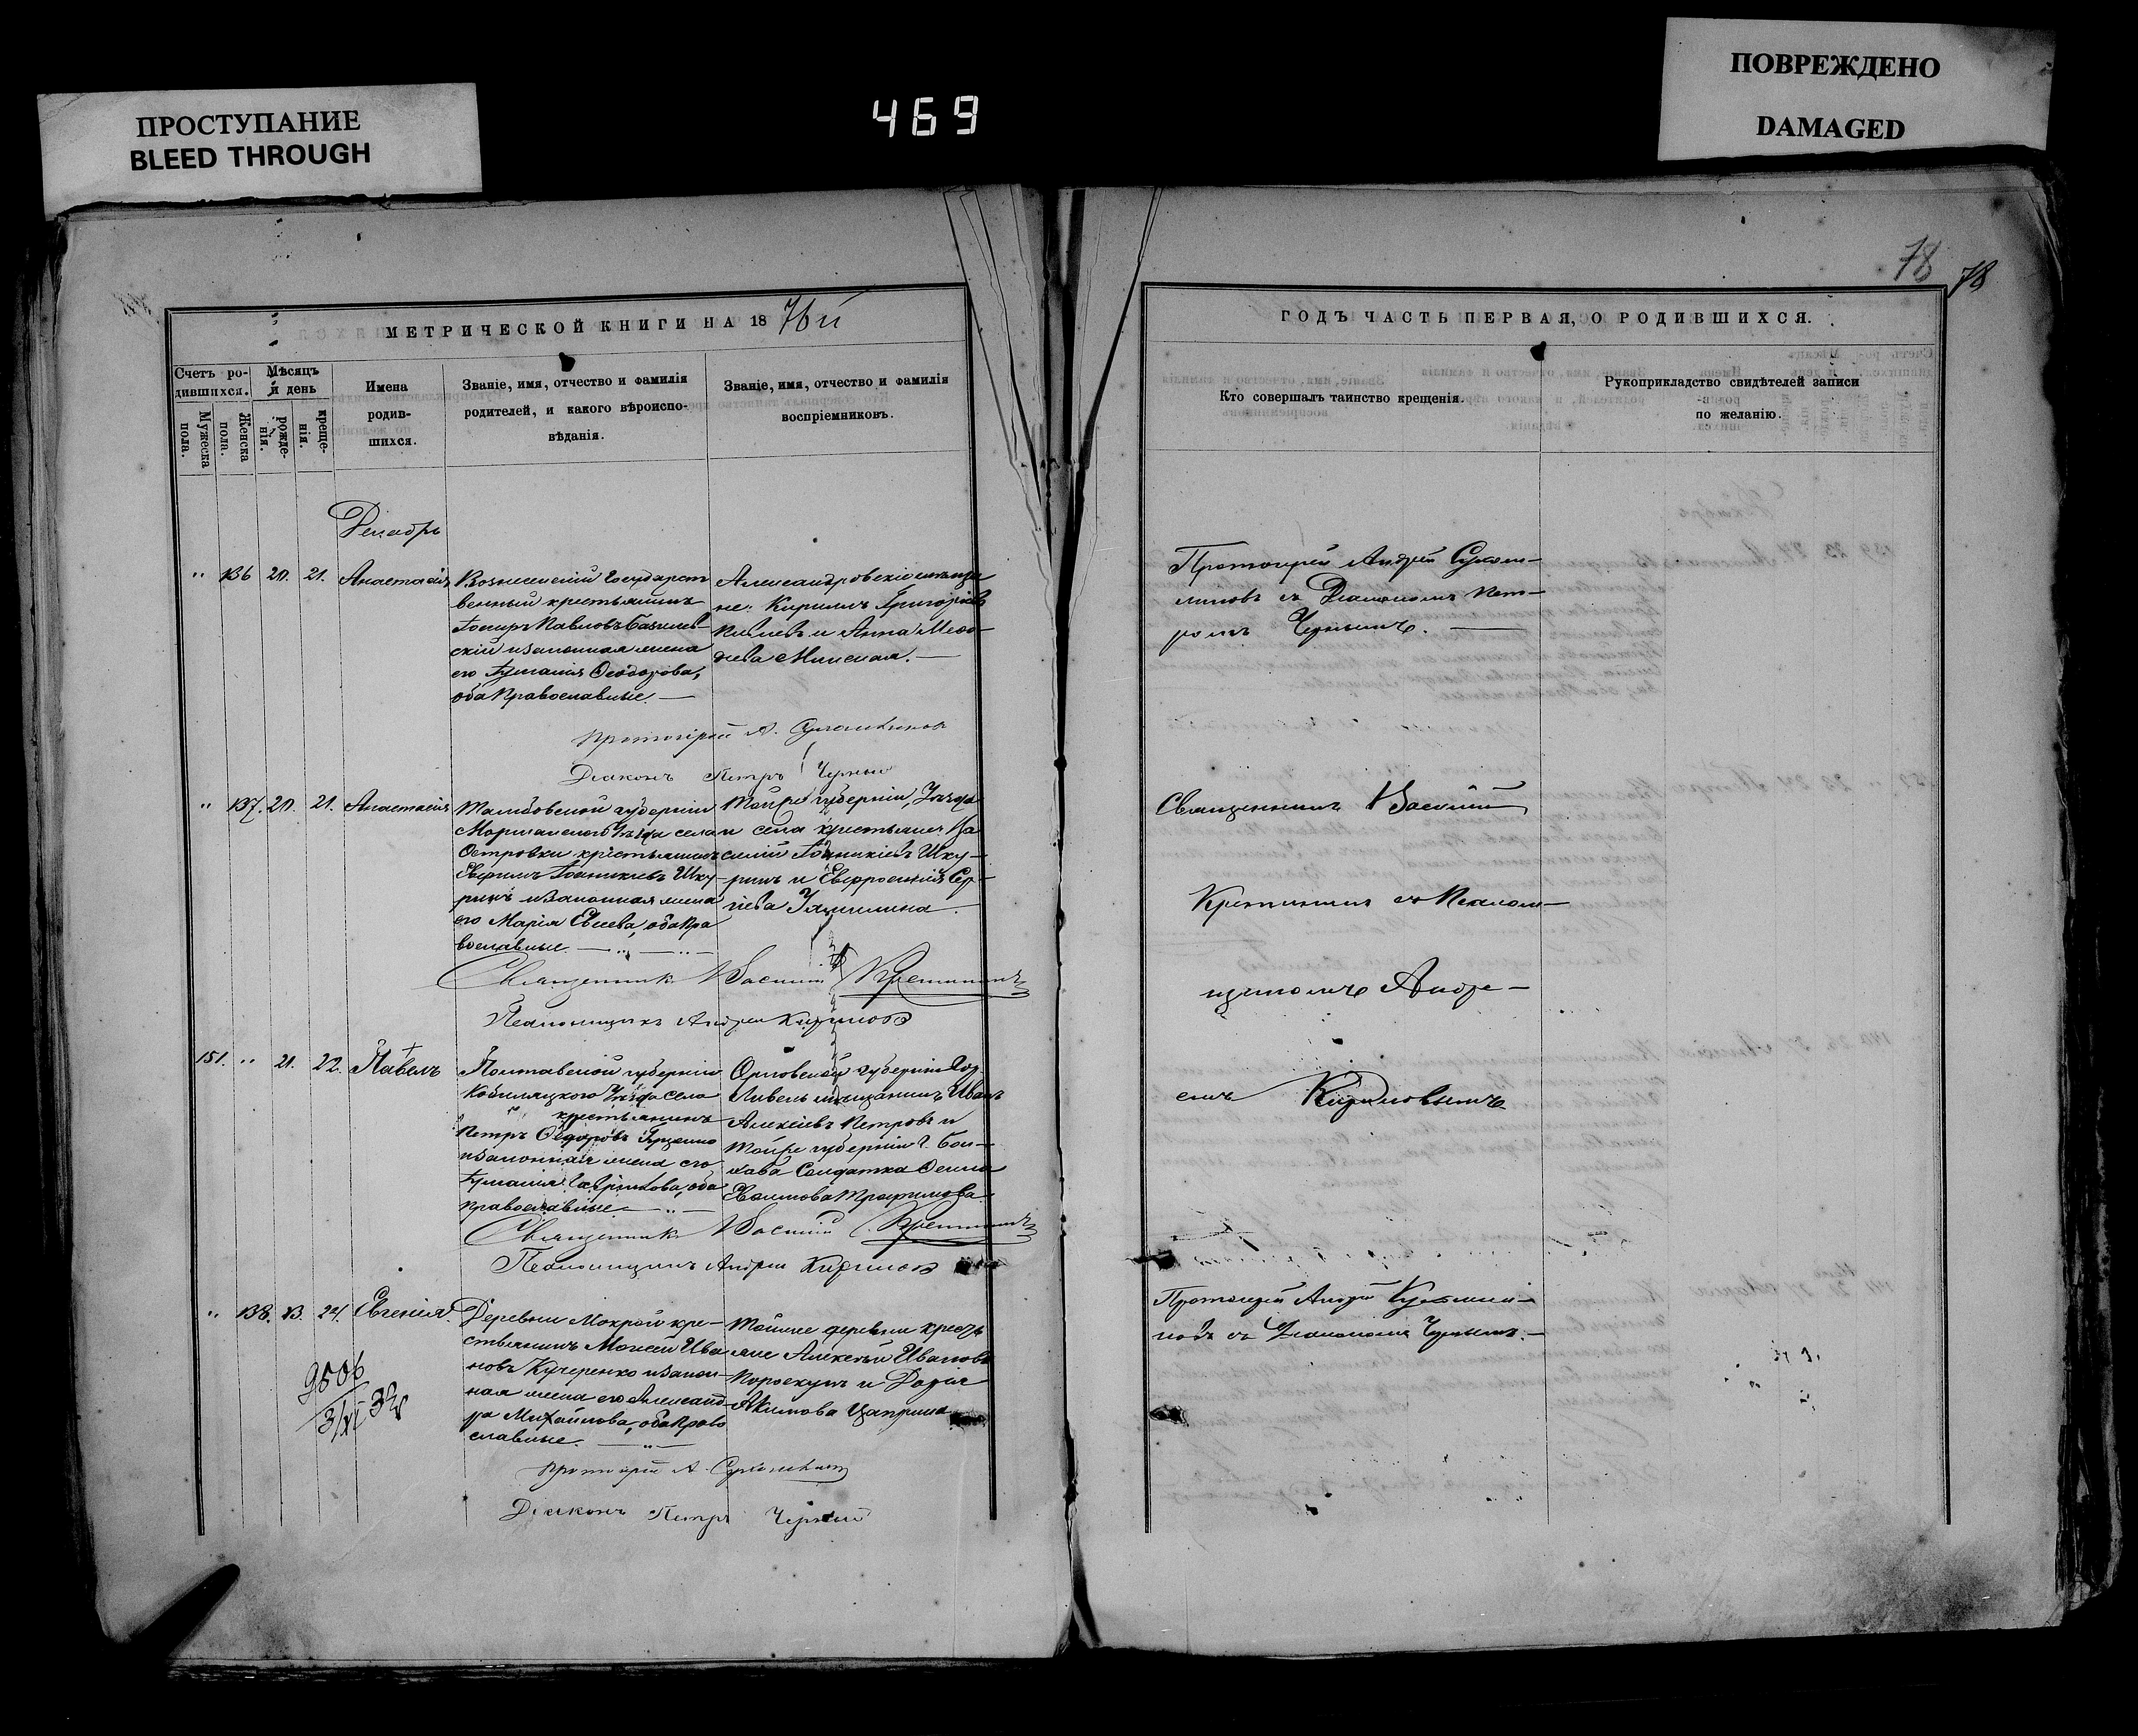 ПРОСТУПАНИЕ
BLEED THROUGH
469
ПОВРЕЖДЕНО
DAMAGED
78
78
МЕТРИЧЕСКОЙ КНИГИ НА 1876й
Счетъ ро-
дившихся.
Мужеска
пола.
Женска
пола.
Мѣсяцъ
и день
рожде-
нія.
креще-
нія.
Имена
родив-
шихся.
Званіе, имя, отчество и фамилія
родителей, и какого вѣроиспо-
вѣданія.
Званіе, имя, отчество и фамилія
воспріемниковъ.
Декабрь
" 136 20. 21. Анастасія
Вознесенскій Государст
венный крестьянинъ
Павловъ
скій и законная жена
его Ѳеодорова,
оба Православные.
Александровскіе мѣща
не: Кирилъ Григоріевъ
и Анна
Минская.
Протоіерей А.
Діаконъ Петръ Черный
" 137. 20. 21. Анастасія
Тамбовской губерніи
Моршанскаго Уѣзда села
Островки крестьянинъ
Евфимъ Іоанникіевъ Шку-
ринъ и законная жена
его Марія Евсеева, оба Пра
вославные.
Той же губерніи, Уѣзда
и села крестьянинъ Ва
силій Іоанникіевъ Шку-
ринъ и Евфросинія Сер-
гіева
Священникъ Василій Кретининъ
Псаломщикъ Андрей Кириловъ
151. " 21. 22. Павелъ
Полтавской губерніи
Кобиляцкого Уѣзда села
крестьянинъ
Петръ Ѳедоровъ
и законная жена его
Гаврилова, оба
православные
Орловской губерніи гор.
Ливенъ мѣщанинъ Иванъ
Алексіевъ Петровъ и
той же губерніи г. Бол-
хова Солдатка
Трофимова.
Священникъ Василій Кретининъ
Псаломщикъ Андрей Кириловъ
" 138. 13. 24. Евгенія.
Деревни Мокрой кре-
стьянинъ Моисей Ива
новъ Кучеренко и закон-
ная жена его Александ-
ра Михайлова, оба Право
славные.
Той же деревни крестья
не Алексѣй Ивановъ
и Дарія
Акимова
9506
3/XI 32
Протоіерей А.
Діаконъ Петръ Черный
ГОДЪ ЧАСТЬ ПЕРВАЯ, О РОДИВШИХСЯ.
Кто совершалъ таинство крещенія.
Рукоприкладство свидѣтелей записи
по желанію.
Протоіерей Андрей
съ Діакономъ Пет-
ромъ Чернымъ.
Священникъ Василій
Кретининъ съ Псалом-
щикомъ Андре-
емъ Кириловымъ
Протоіерей Андрей
съ Діакономъ Чернымъ.